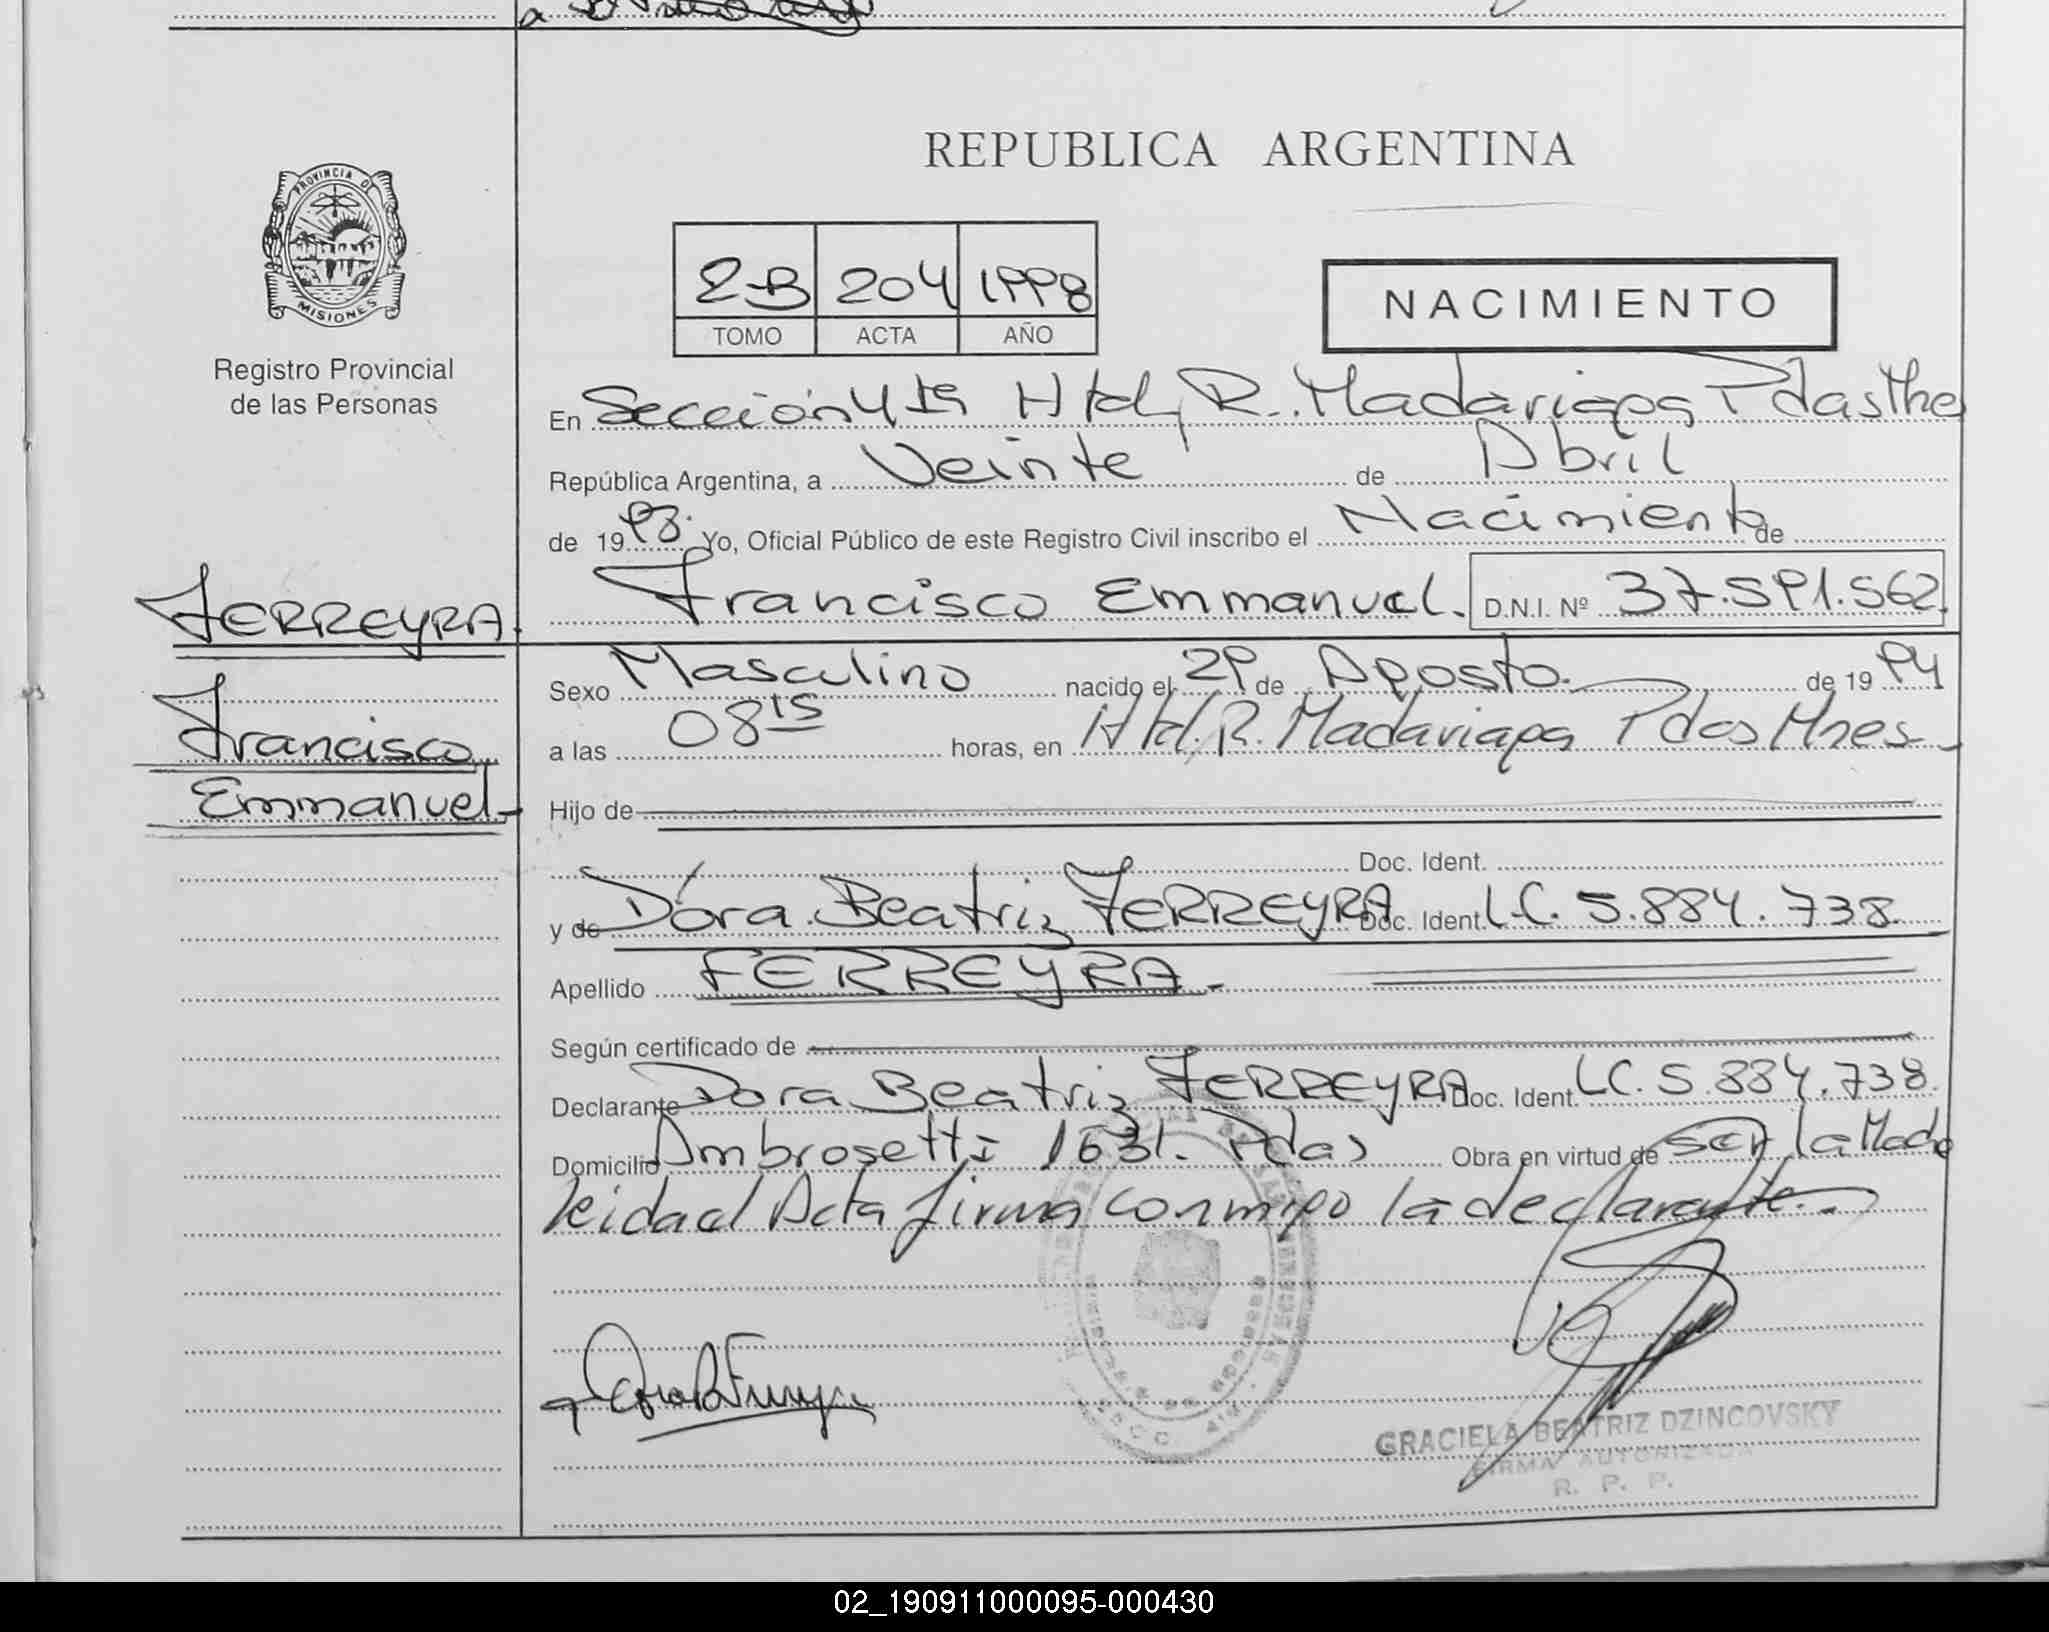 REPUBLICA ARGENTINA
PROVINCIA DE
MISIONES
Registro Provincial
de las Personas
2-B 204 1998
TOMO ACTA AÑO
NACIMIENTO
En Sección 4ta Htal, R. Madariaga Pdas Mnes
República Argentina, a Veinte de Abril
de 1998. Yo, Oficial Público de este Registro Civil inscribo el Nacimiento de
Francisco Emmanuel. D.N.I. Nº 37.591.562.
FERREYRA.
Francisco
Emmanuel-
Sexo Masculino nacido el 29 de Agosto. de 1994
a las 08 15 horas, en Htal. R. Madariaga Pdas Mnes-
Hijo de
Doc. Ident.
y de Dora Beatriz FERREYRA Doc. Ident. LC. 5.884.738.
Apellido FERREYRA.-
Según certificado de
Declarante Dora Beatriz FERREYRA Doc. Ident. LC. 5.884.738.
Domicilio Ambrosetti 1631. Pdas Obra en virtud de ser la Madre
leida el Acta firma conmigo la declarante.-
Dora B Ferreyra
GRACIELA BEATRIZ DZINCOVSKY
FIRMA AUTORIZADA
R. P. P.
02_190911000095-000430